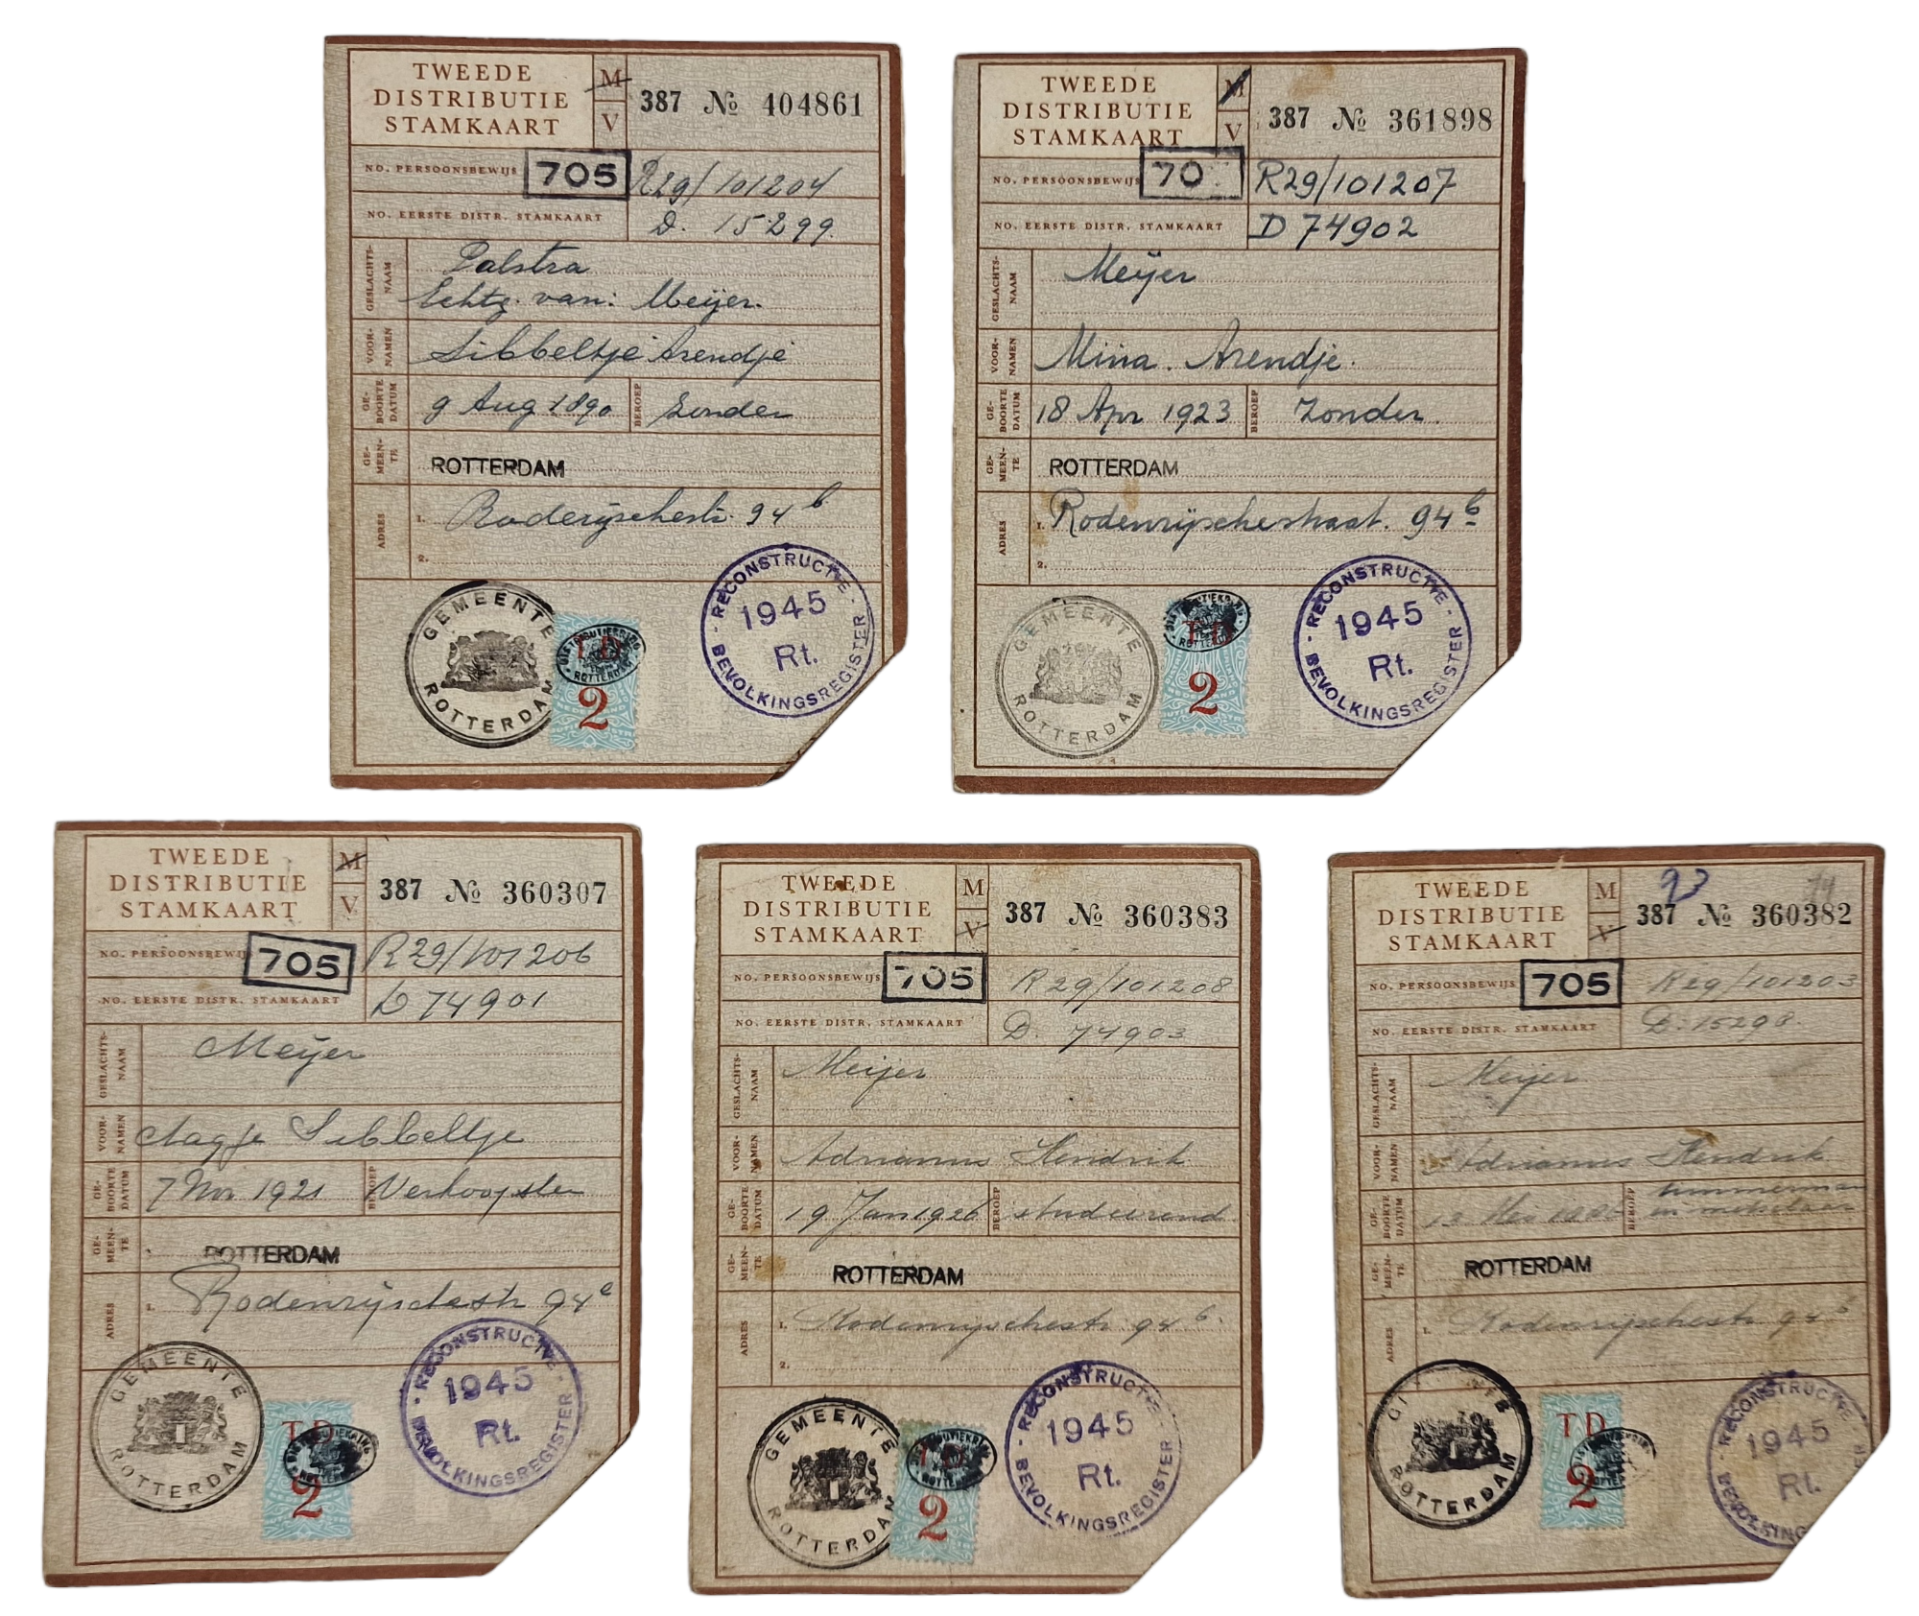 TWEEDE
DISTRIBUTIE
STAMKAART
M
V
387 № 404861
NO. PERSOONSBEWIJS
705
R29/101204
NO. EERSTE DISTR. STAMKAART
D. 15299.
GESLACHTS-
NAAM
Palstra
Echtg. van: Meijer.
VOOR-
NAMEN
Sibbeltje Arendje
GE-
BOORTE
DATUM
9 Aug 1890
BEROEP
Zonder
GE-
MEEN-
TE
ROTTERDAM
ADRES
1.
94 b
2.
GEMEENTE
ROTTERDAM
DISTRIBUTIEKRING
ROTTERDAM
T D
2
- RECONSTRUCTIE -
1945
Rt.
BEVOLKINGSREGISTER
TWEEDE
DISTRIBUTIE
STAMKAART
M
V
387 № 361898
NO. PERSOONSBEWIJS
70
R29/101207
NO. EERSTE DISTR. STAMKAART
D 74902
GESLACHTS-
NAAM
Meijer
VOOR-
NAMEN
Mina. Arendje.
GE-
BOORTE
DATUM
18 Apr 1923
BEROEP
Zonder.
GE-
MEEN-
TE
ROTTERDAM
ADRES
1. Rodenrijschestraat. 94 b
2.
GEMEENTE
ROTTERDAM
DISTRIBUTIEKRING
ROTTERDAM
T D
2
- RECONSTRUCTIE -
1945
Rt.
BEVOLKINGSREGISTER
TWEEDE
DISTRIBUTIE
STAMKAART
M
V
387 № 360307
NO. PERSOONSBEWIJS
705
R29/101206
NO. EERSTE DISTR. STAMKAART
D 74901
GESLACHTS-
NAAM
Meijer
VOOR-
NAMEN
Aagje Sibbeltje
GE-
BOORTE
DATUM
7 Nov 1921
BEROEP
Verkoopster
GE-
MEEN-
TE
ROTTERDAM
ADRES
1. Rodenrijschestr 94
GEMEENTE
ROTTERDAM
T D
2
DISTRIBUTIEKRING
- RECONSTRUCTIE -
1945
Rt.
BEVOLKINGSREGISTER
TWEEDE
DISTRIBUTIE
STAMKAART
M
V
387 № 360383
NO. PERSOONSBEWIJS
705
R 29/101208
NO. EERSTE DISTR. STAMKAART
D. 74903
GESLACHTS-
NAAM
Meijer
VOOR-
NAMEN
Adrianus Hendrik
GE-
BOORTE
DATUM
19 Jan 1926
BEROEP
studeerend
GE-
MEEN-
TE
ROTTERDAM
ADRES
1. Rodenrijschestr. 94 b.
2.
GEMEENTE
ROTTERDAM
DISTRIBUTIEKRING
T D
2
- RECONSTRUCTIE -
1945
Rt.
BEVOLKINGSREGISTER
TWEEDE
DISTRIBUTIE
STAMKAART
M
V
387 № 360382
NO. PERSOONSBEWIJS
705
R29/101203
NO. EERSTE DISTR. STAMKAART
D. 15298.
GESLACHTS-
NAAM
Meijer
VOOR-
NAMEN
Adrianus Hendrik
GE-
BOORTE
DATUM
Mei
BEROEP
timmerman
en metselaar
GE-
MEEN-
TE
ROTTERDAM
ADRES
1. Rodenrijschestr 94 b
ROTTERDAM
T D
2
- RECONSTRUCTIE
1945
Rt.